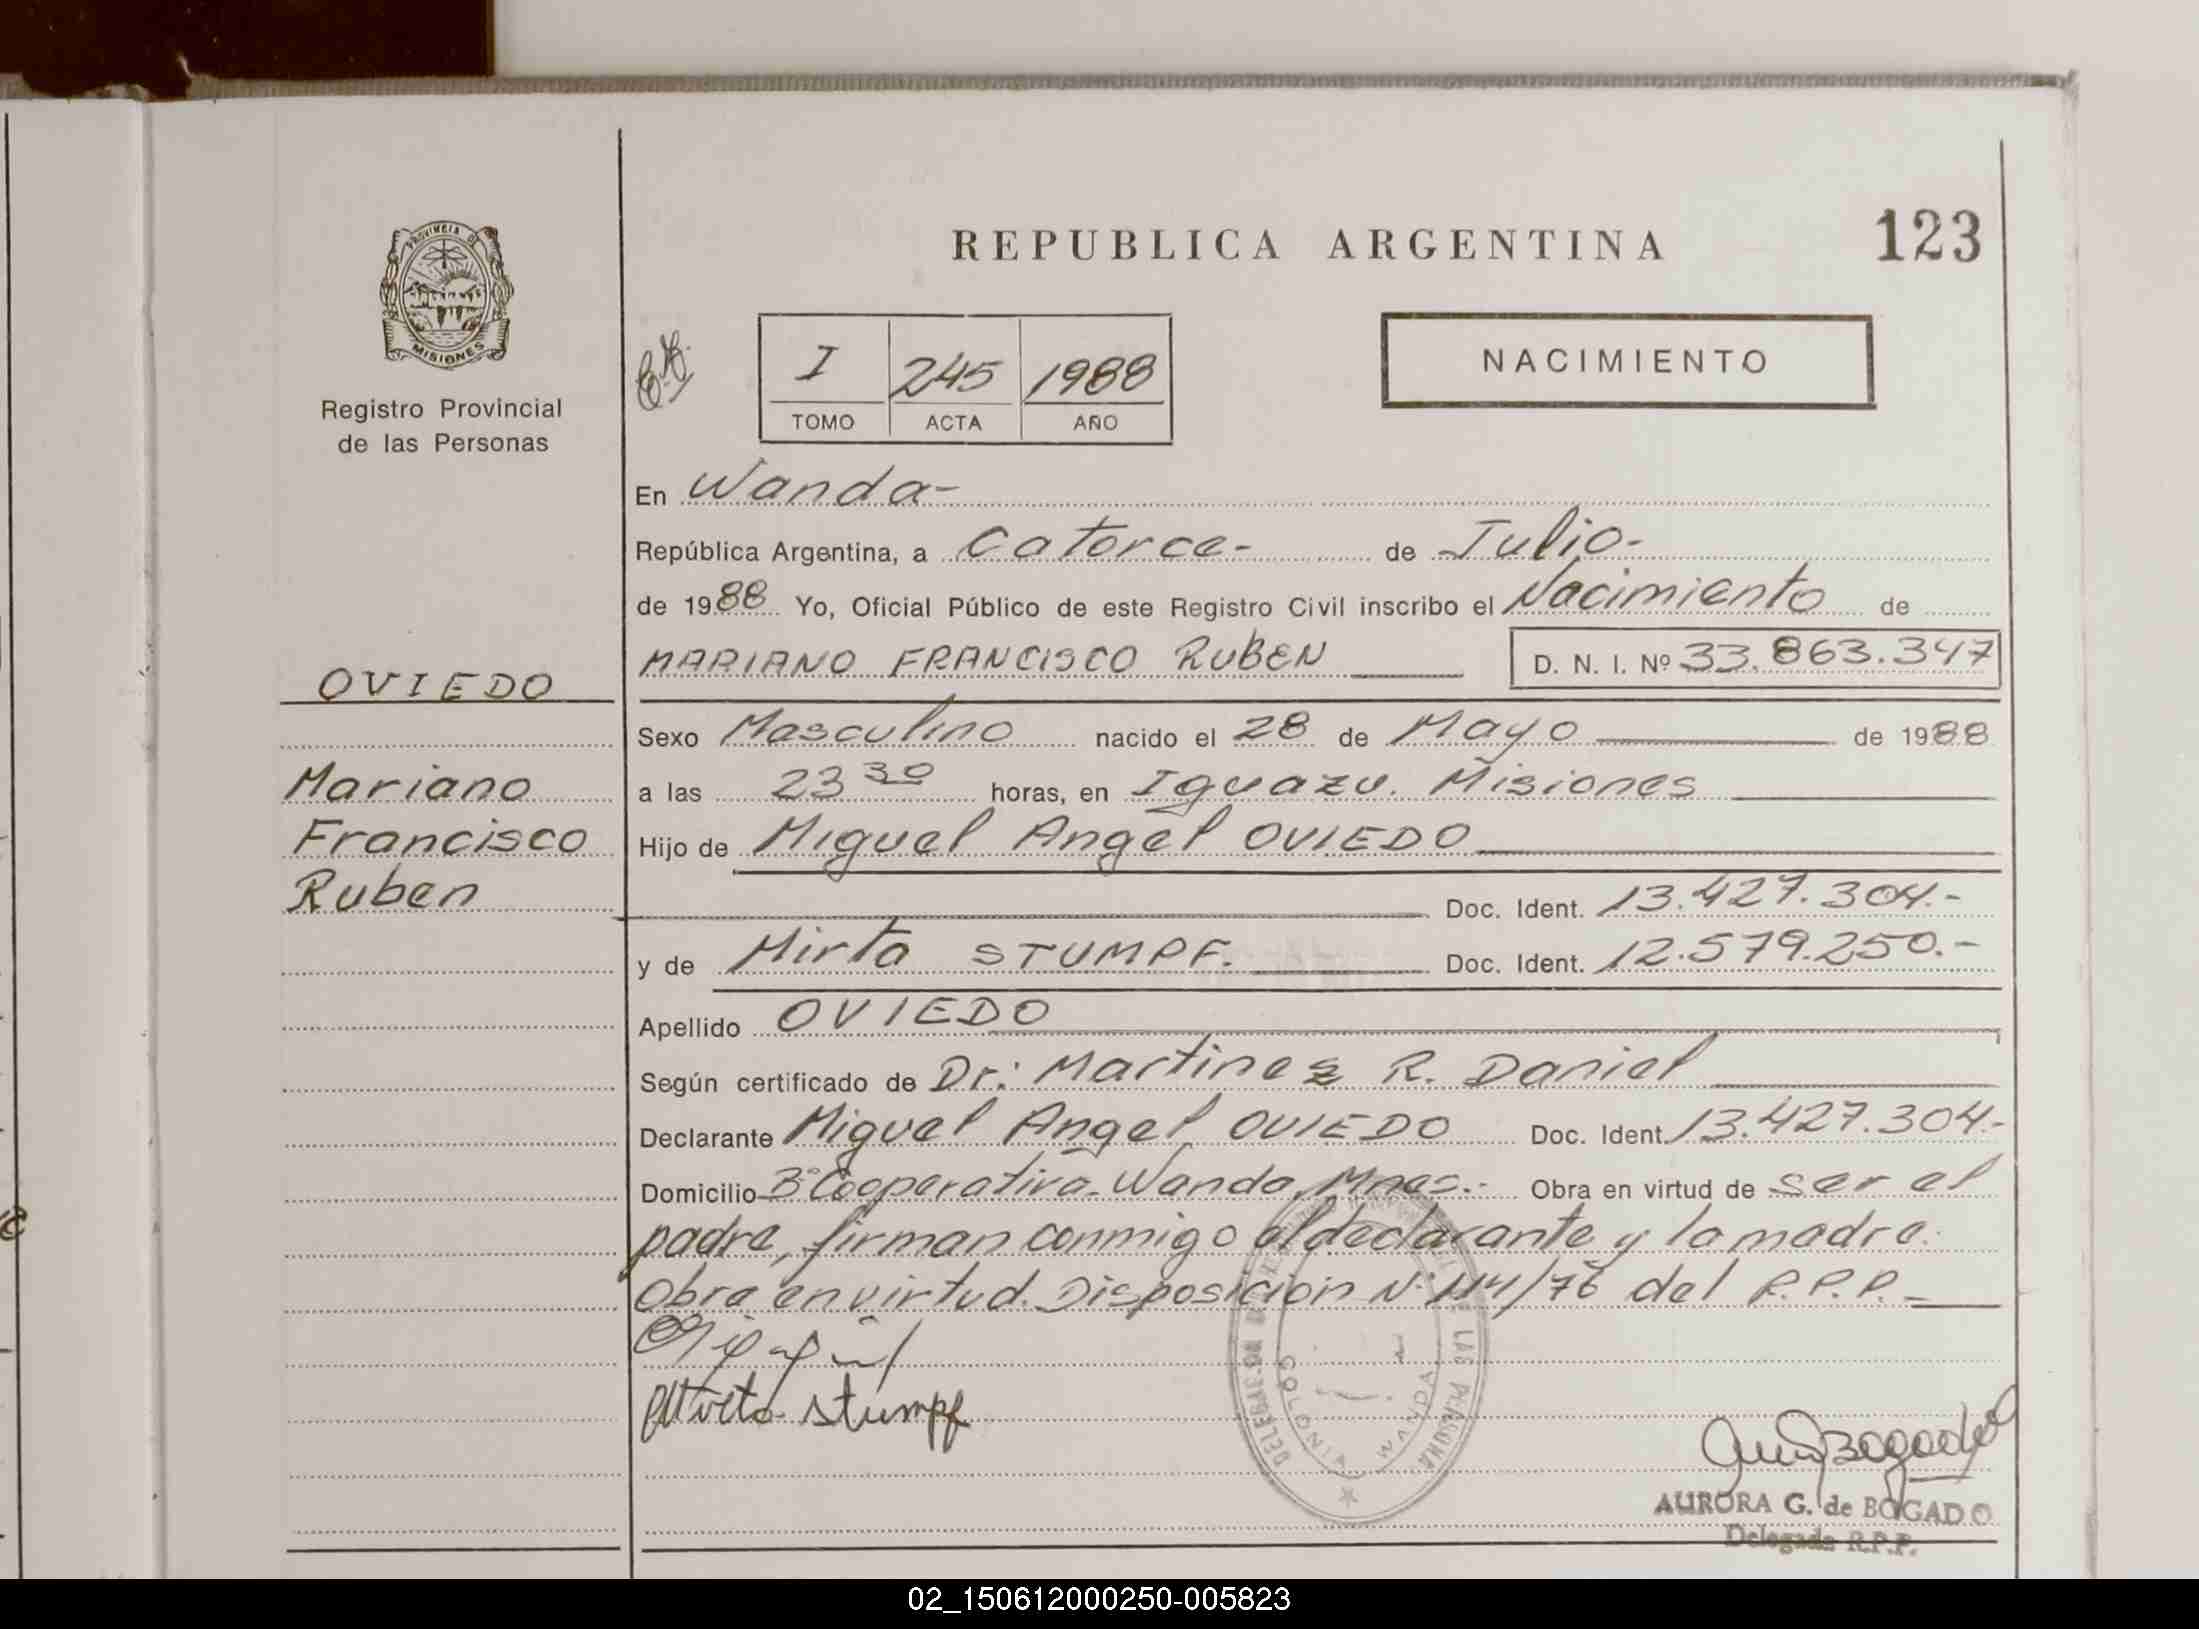 PROVINCIA DE
MISIONES
Registro Provincial
de las Personas
OVIEDO
Mariano
Francisco
Ruben
REPUBLICA ARGENTINA
123
I 245 1988
TOMO ACTA AÑO
NACIMIENTO
En Wanda-
República Argentina, a Catorce- de Julio-
de 1988 Yo, Oficial Público de este Registro Civil inscribo el Nacimiento de
MARIANO FRANCISCO RUBEN D. N. I. Nº 33.863.347
Sexo Masculino nacido el 28 de Mayo de 1988
a las 23 30 horas, en Iguazu. Misiones
Hijo de Miguel Angel OVIEDO
Doc. Ident. 13.427.304.-
y de Mirta STUMPF. Doc. Ident. 12.579.250.-
Apellido OVIEDO
Según certificado de Dr: Martinez R. Daniel
Declarante Miguel Angel OVIEDO Doc. Ident. 13.427.304.-
Domicilio 3º Cooperativa. Wanda, Mnes.- Obra en virtud de ser el
padre, firman conmigo el declarante y la madre.
Obra en virtud. Disposición Nº 114/76 del R.P.P.-
Stumpf
COLONIA WANDA
AURORA G. de BOGADO
Delegada R.P.P.
02_150612000250-005823